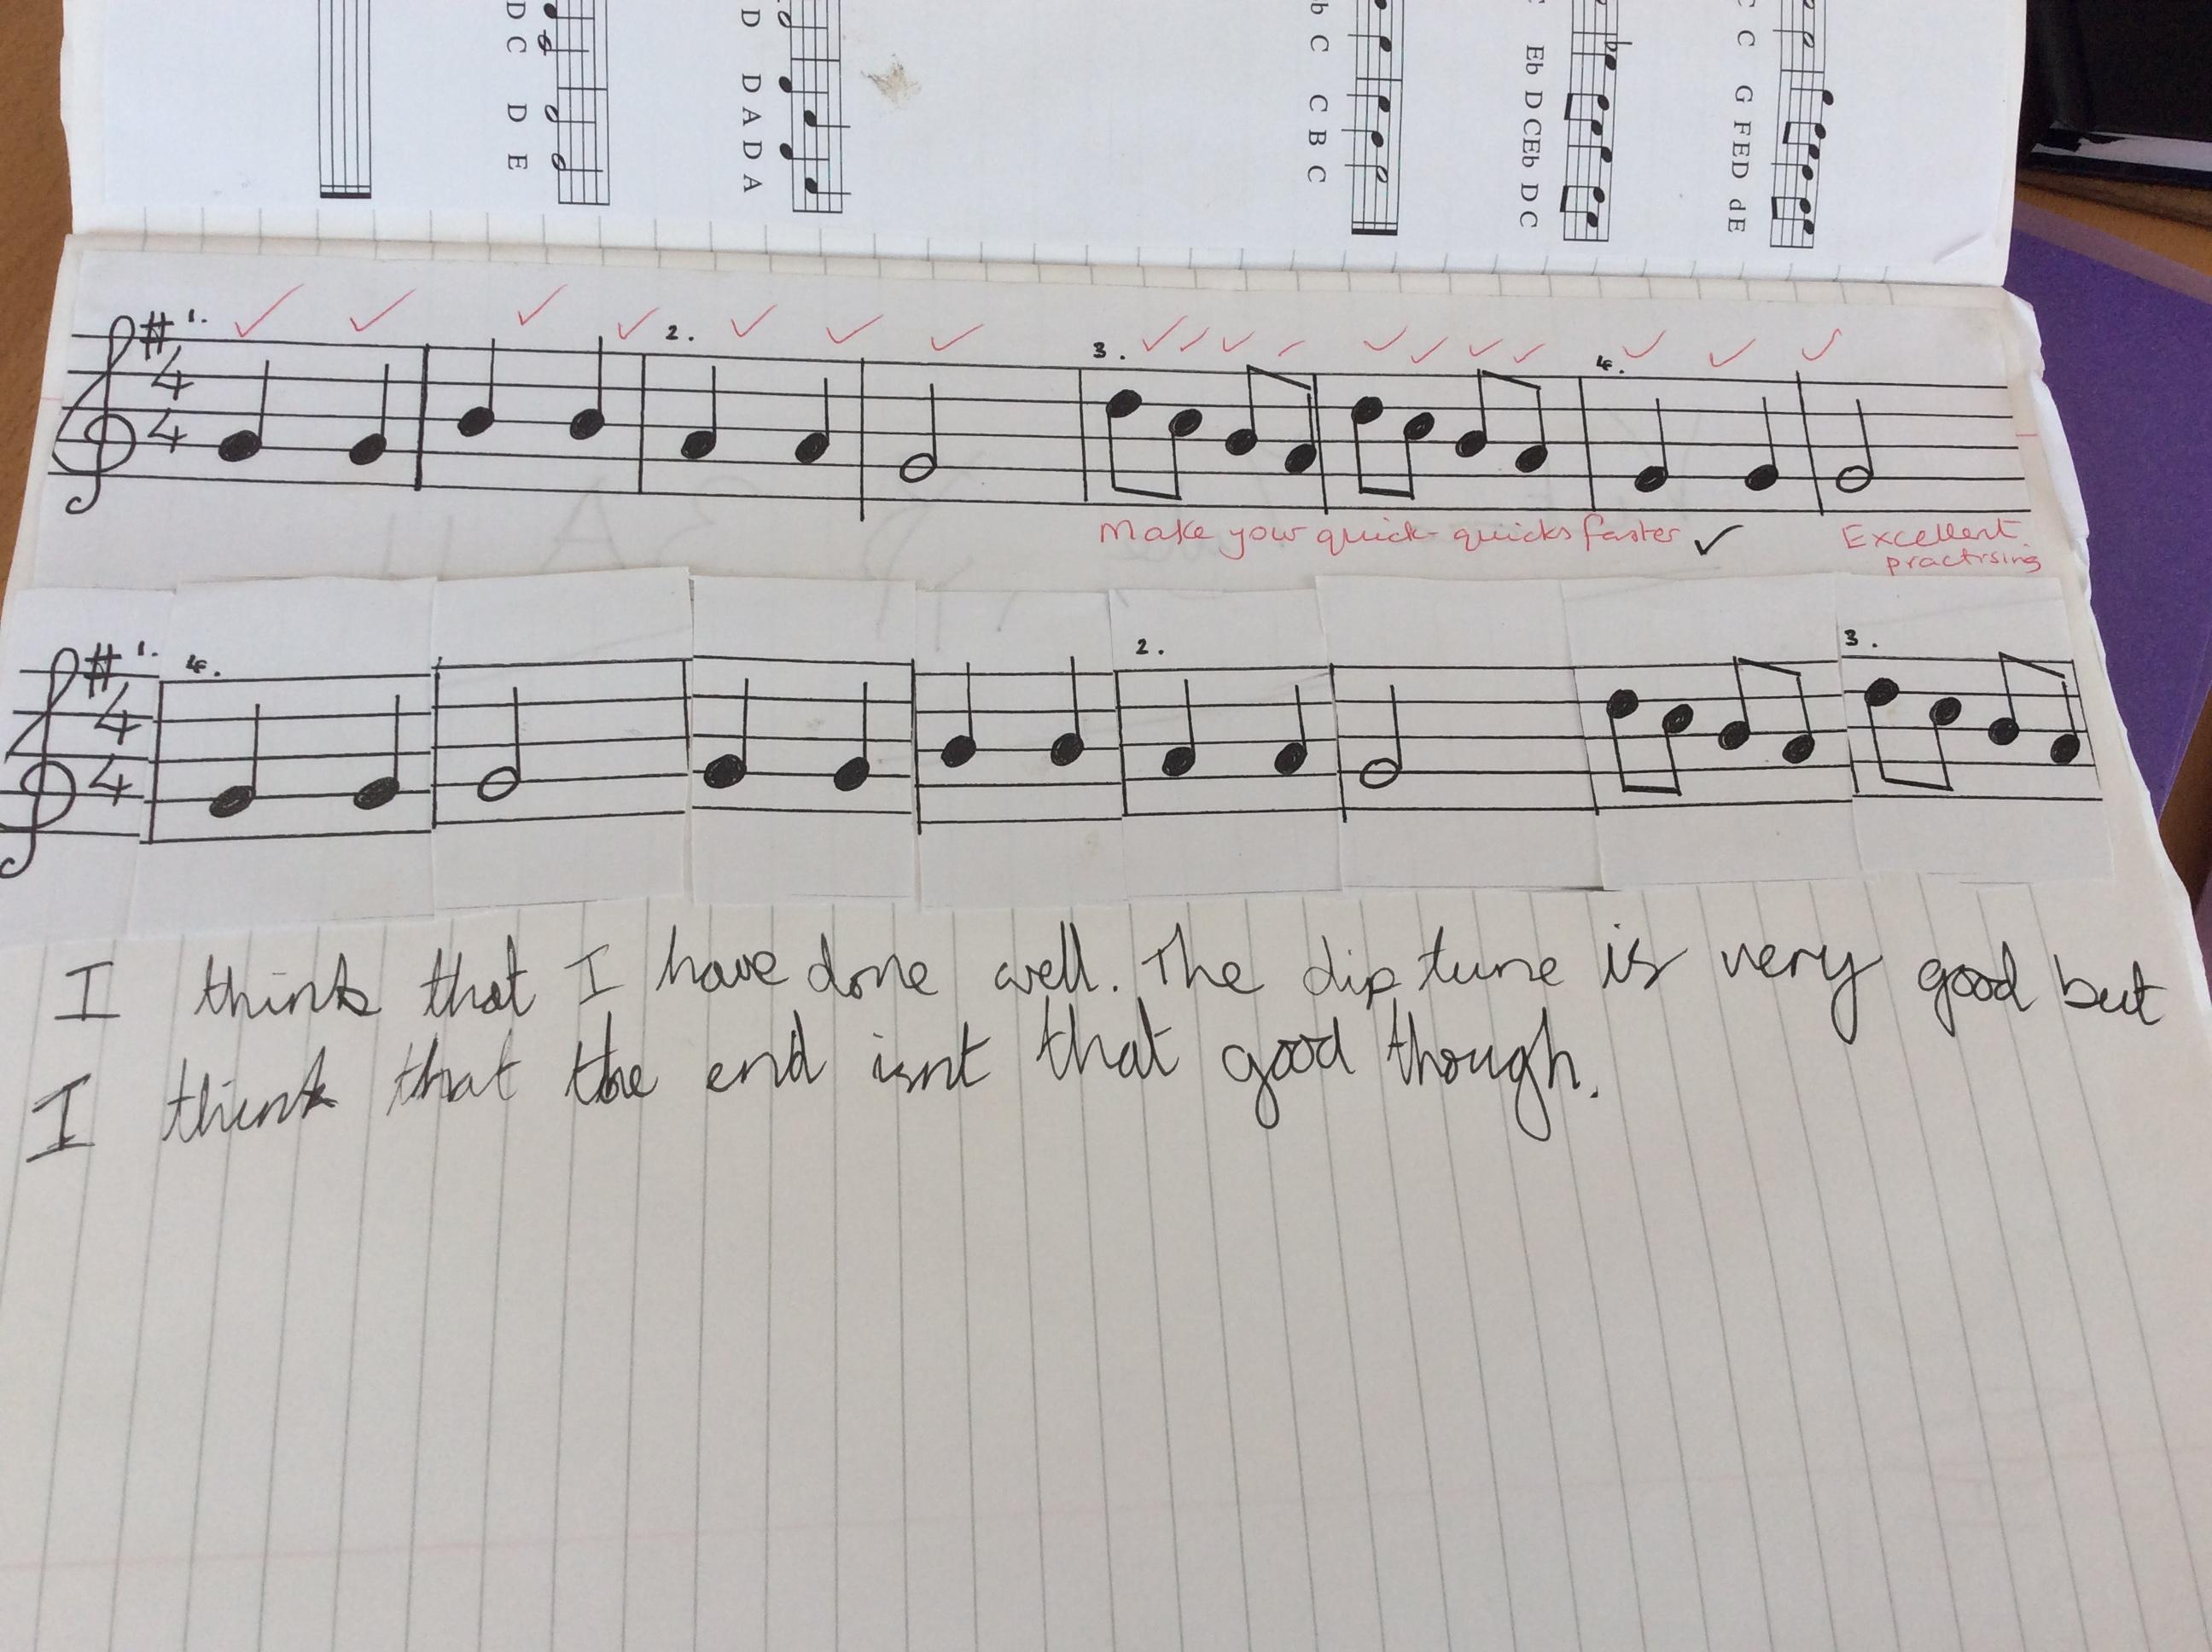 D C D E
D D A D A
b C C B C
C Eb D CEb D C
C C G FED dE
# 1. 2. 3. 4.
4
4
Make your quick-quicks faster ✓ Excellent
practising
# 1. 4. 2. 3.
4
4
I think that I have done well. The dip tune is very good but
I think that the end isnt that good though.